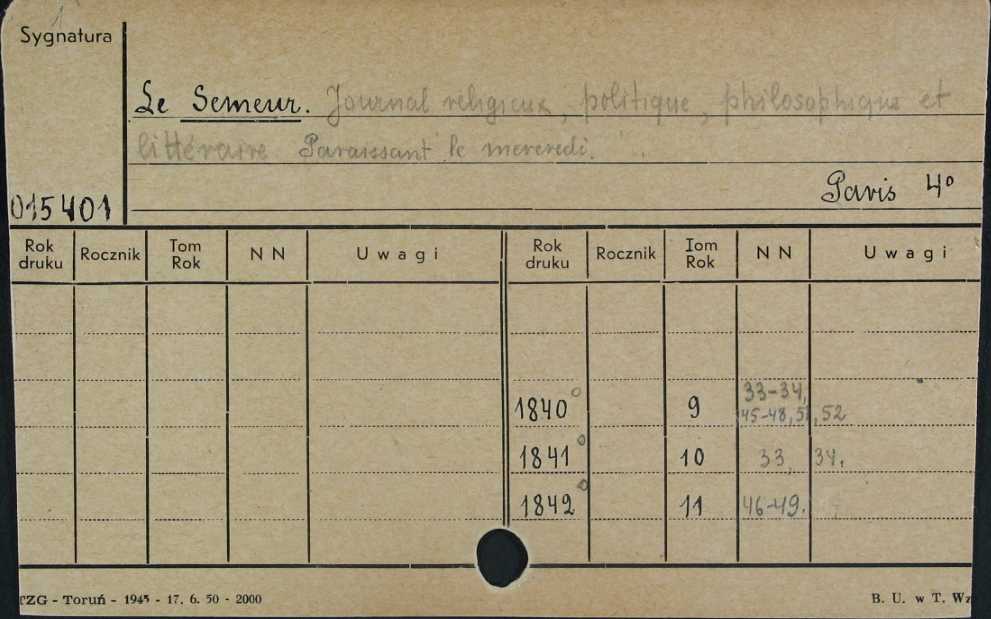 Sygnatura
Le Semeur. Journal religieux, politique, philosophique et
littéraire Paraissant le mercredi.
Paris 4°
015401
Rok druku Rocznik Tom Rok N N Uwagi Rok druku Rocznik Tom Rok N N Uwagi
1840° 9 33-34,
45-48, 51, 52
1841° 10 33, 34.
1842° 11 46-49.
TZG - Toruń - 1945 - 17. 6. 50 - 2000 B. U. w T. Wz